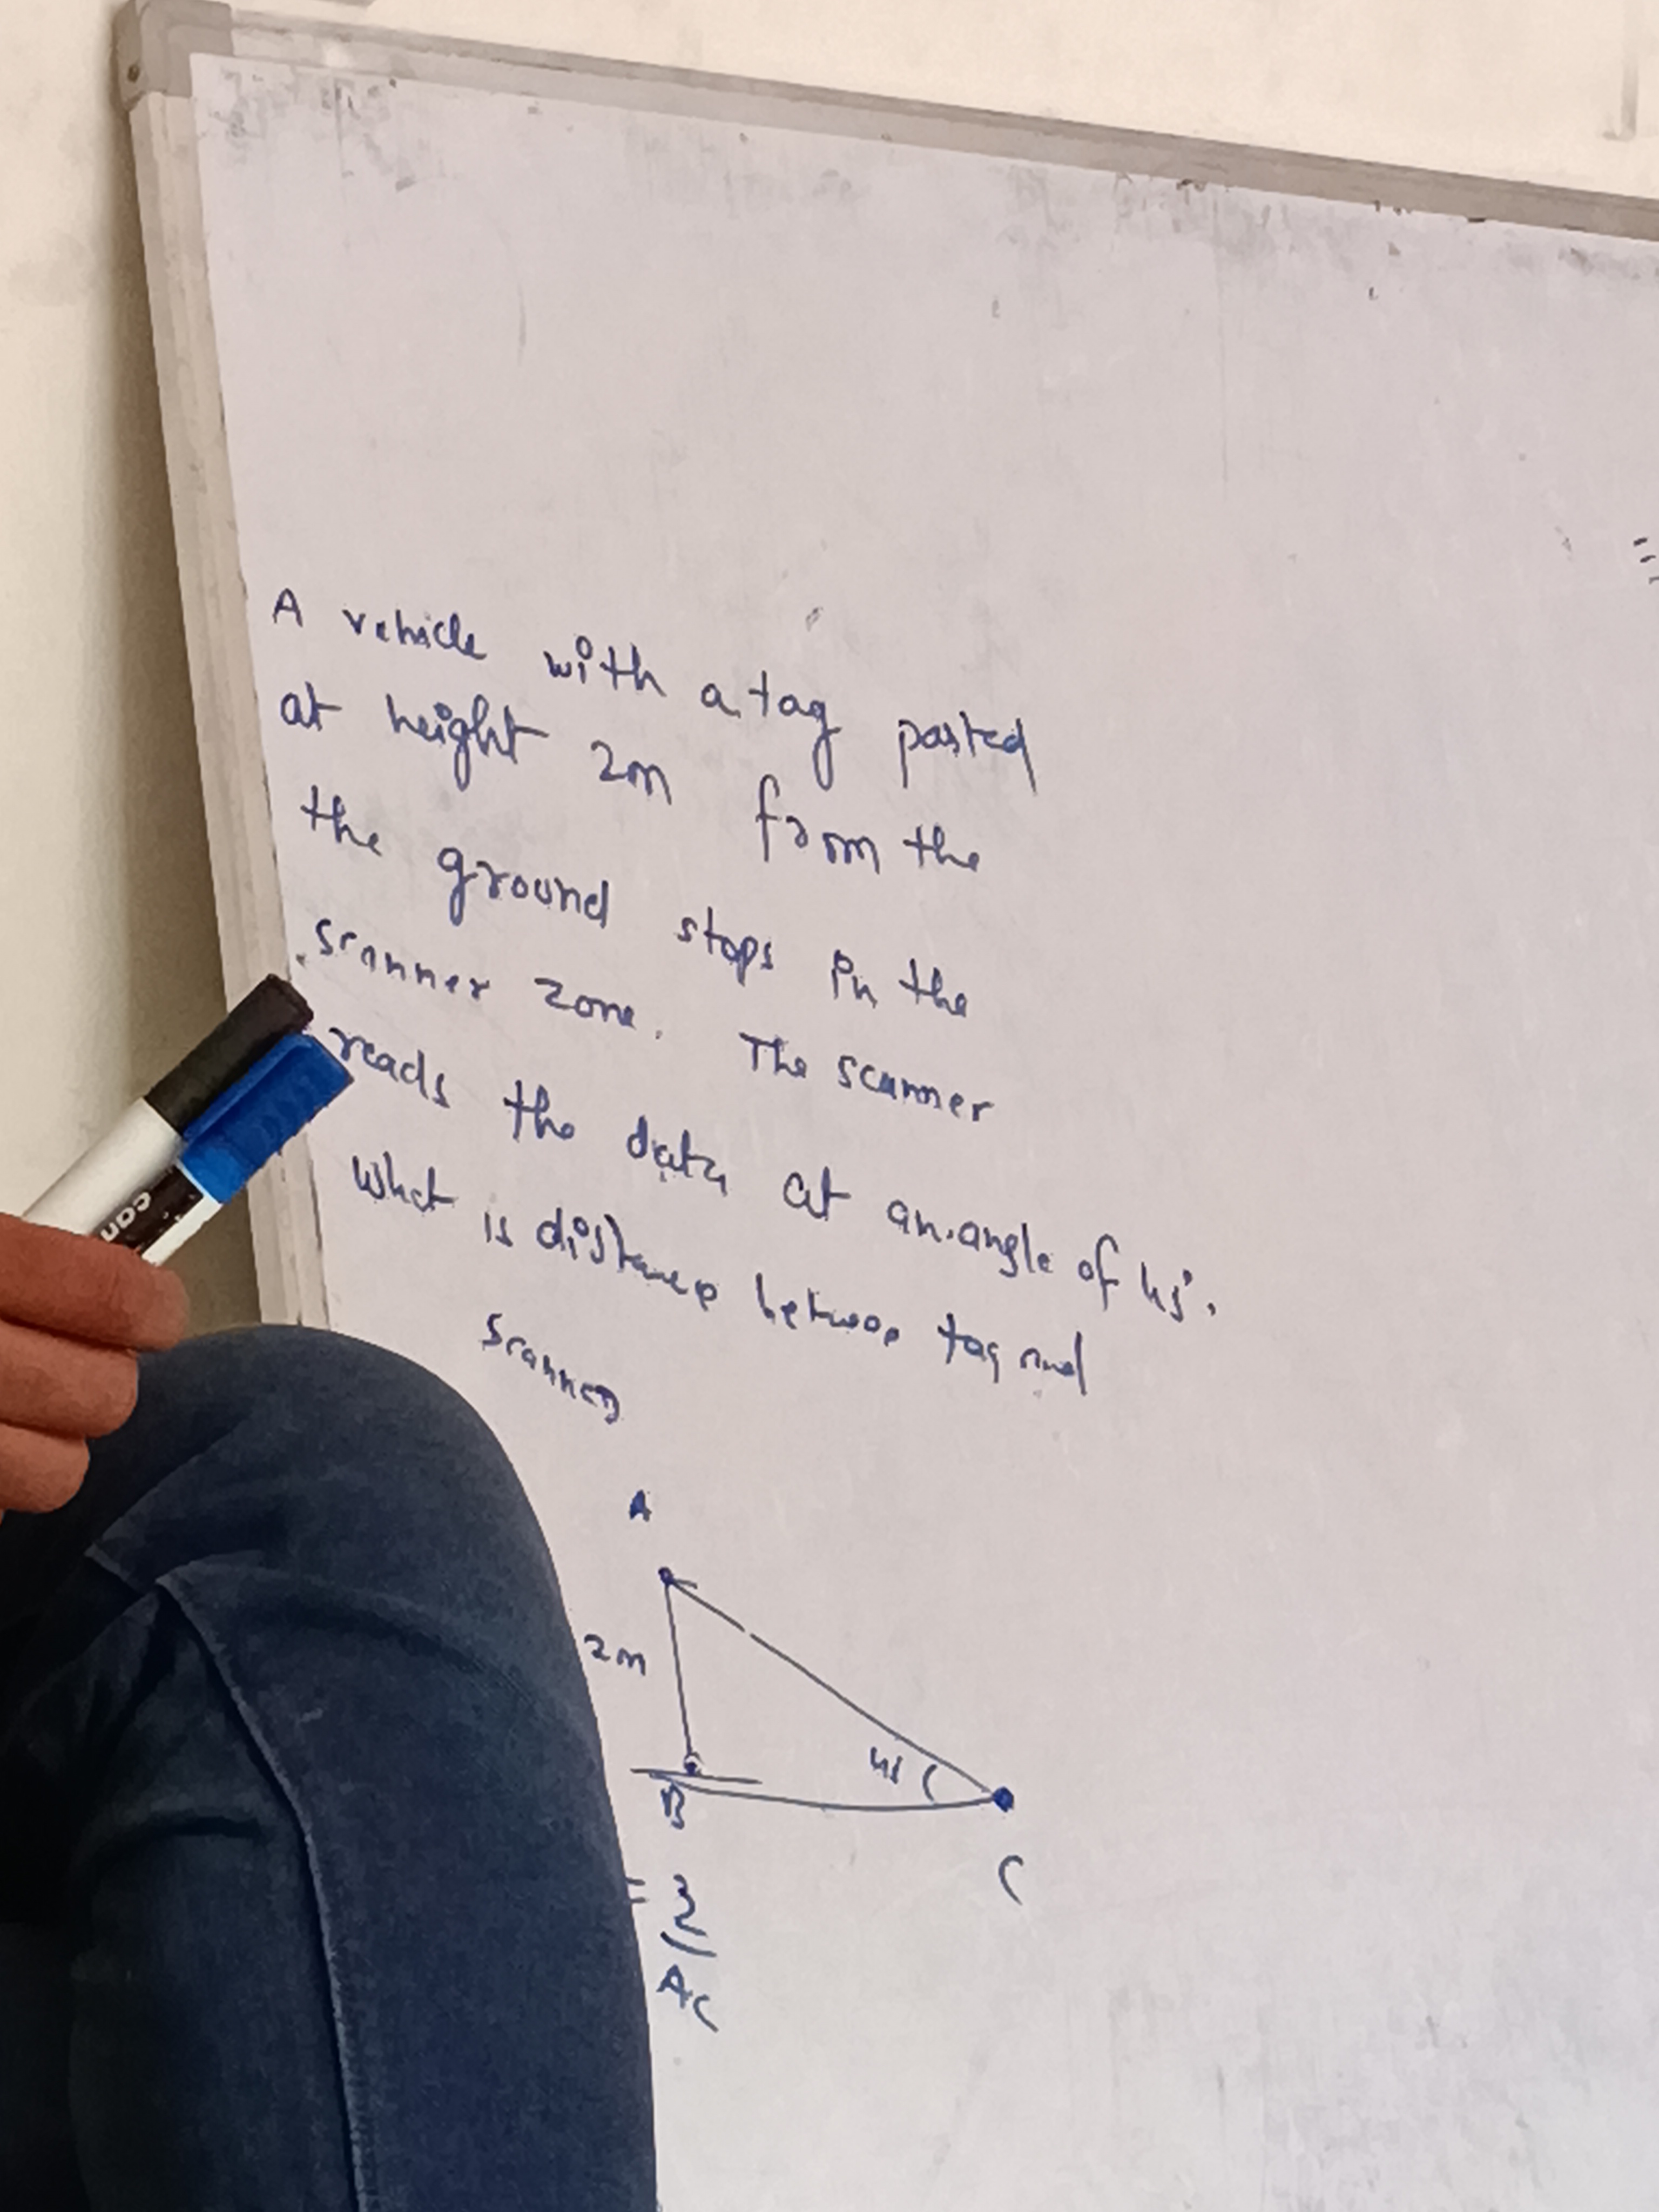 A vehicle with a tag pasted
at height 2m from the
the ground stops in the
scanner zone. The scanner
reads the data at an angle of 45°.
What is distance between tag and
scanner
A
2m
45
B
C
= 2
AC
can
=